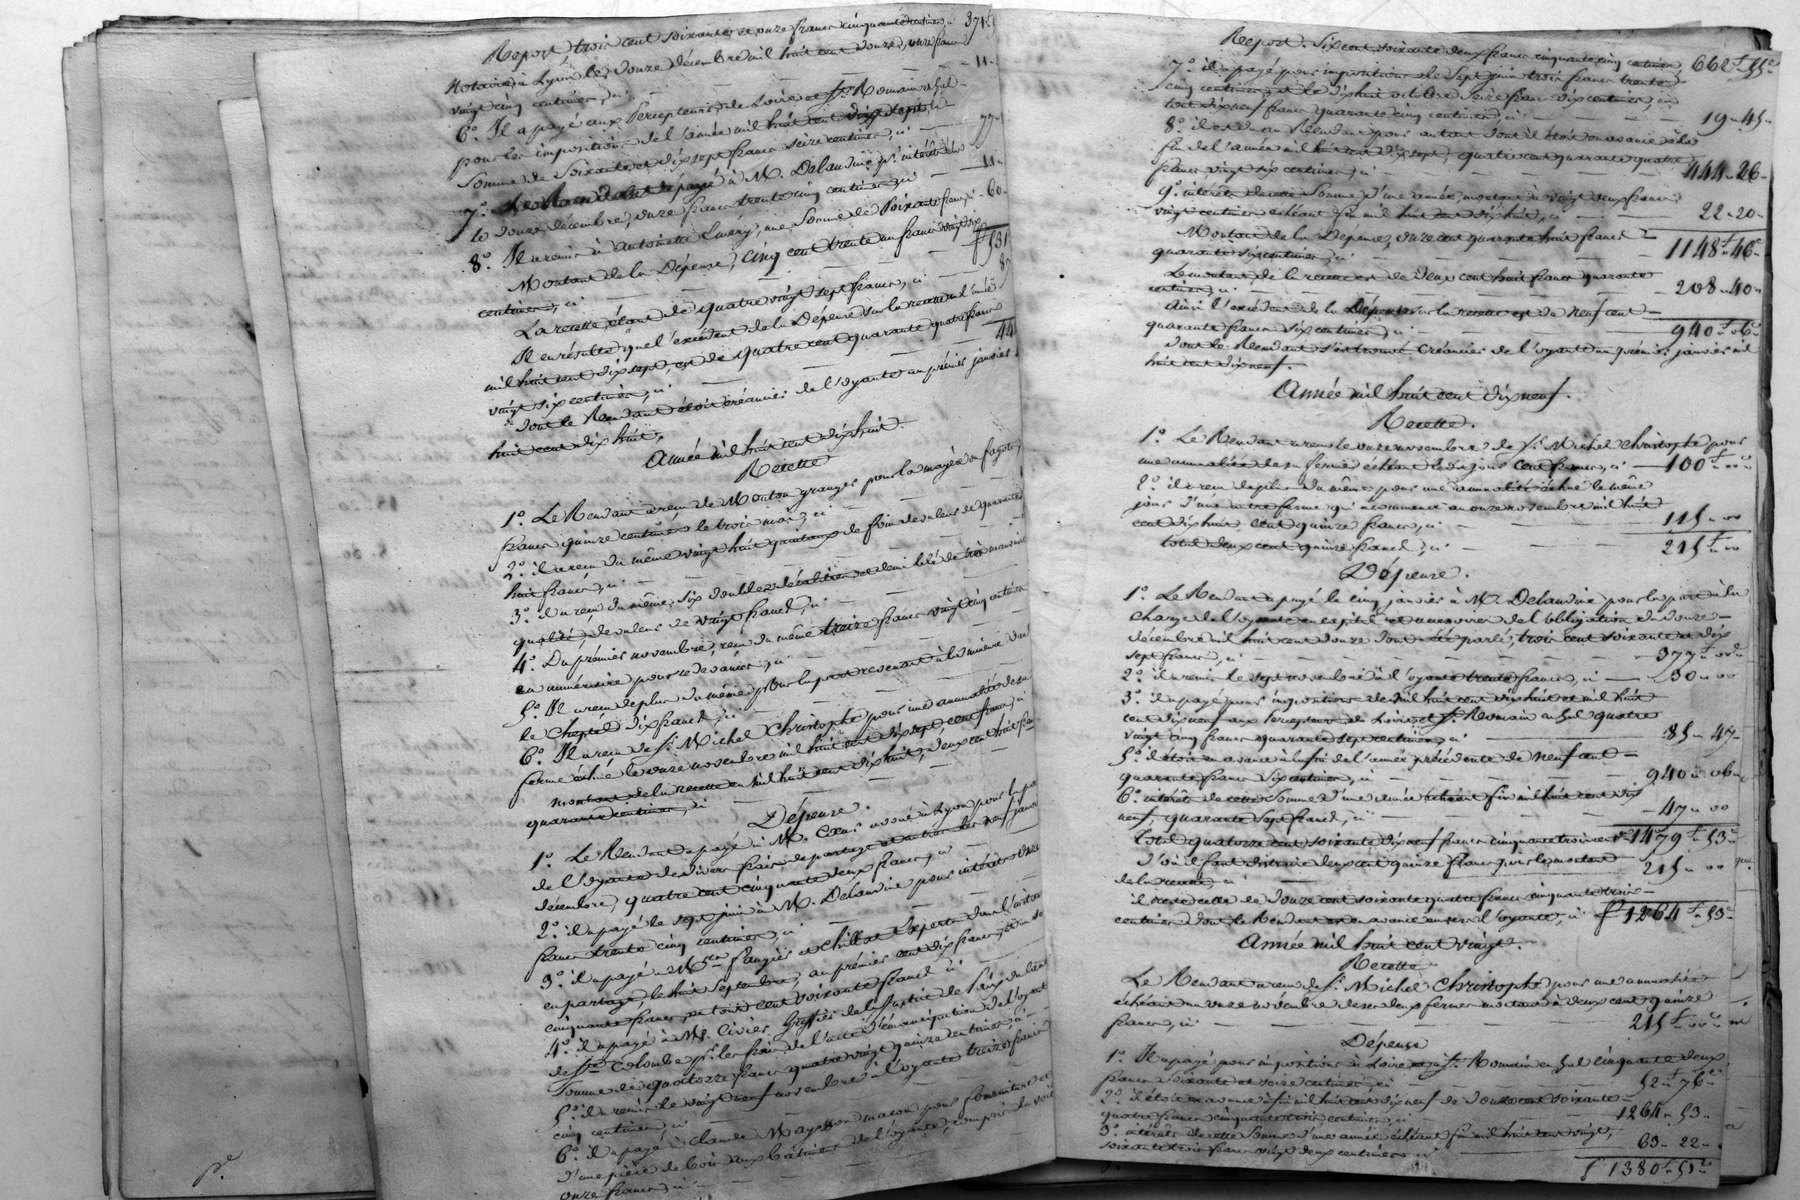 Report, trois cent soixante et onze francs cinquante centimes, ci 371
Notaire à Lyon le douze décembre mil huit cent douze, onze francs
vingt cinq centimes, ci 11
6º. Il a payé aux Percepteurs de Loire et St. Romain en Gal
pour les impositions de l'année mil huit cent dix sept, la
somme de soixante et dix sept francs seize centimes, ci 77
7º. Le Rendant a payé à M. Delandine pr. intérêts
le douze décembre, onze francs trente cinq centimes, ci 11
8º. Il a remis à Antoinette une somme de soixante francs, ci 60
Montant de la Dépense, cinq cent trente un francs vingt six
centimes, ci 531
La recette étant de quatre vingt sept francs, ci 87
Il en résulte que l'excédent de la Dépense sur la recette
mil huit cent dix sept, est de quatre cent quarante quatre francs
vingt six centimes, ci 44
dont le Rendant étoit créancier de l'oyante au premier janvier
huit cent dix huit.
Année mil huit cent dix huit.
Recette
1º. Le Rendant a reçu de Mouton granger pour la moyée de fagots,
francs quinze centimes le trois mars, ci
2º. il a reçu du même vingt huit quintaux de foin de valeur de quarante
huit francs, ci
3º. il a reçu du même, six doubles décalitres et demi blé de très mauvaise
qualité, de valeur de vingt francs, ci
4º. Du premier novembre, reçu du même treize francs vingt cinq centimes
en numéraire pour redevances, ci
5º. Il a reçu de plus du même pour la part revenant à la mineure dans
le Cheptel dix francs, ci
6º. Il a reçu de Sr. Michel Christophe pour une annuité de sa
ferme échue le onze novembre mil huit cent dix sept, cent francs, ci
montant de la recette en mil huit cent dix huit, deux cent huit francs
quarante centimes, ci
Dépense.
1º. Le Rendant a payé à M. Cœur avoué à Lyon pour la part
de l'oyante de divers frais de partage et autres les neuf janvier
décembre, quatre cent cinquante deux francs, ci
2º. il a payé le sept juin à M. Delandine pour intérêts onze
francs trente cinq centimes, ci
3º. il a payé à Mrs. Faugier et Chillat Experts dans l'instance
en partage, le huit septembre, au premier cent dix francs, et au second
cinquante francs, en tout cent soixante francs, ci
4º. il a payé à M. Civier, Greffier de la Justice de Paix du canton
de Ste. Colombe pr. les frais de l'acte d'émancipation de l'oyante
somme de quatorze francs quatre vingt quinze centimes, ci
5º. il a remis le vingt neuf novembre à l'oyante treize francs
cinq centimes, ci
6º. il a payé à Claude Mayosson maçon pour fourniture et
d'une pièce de bois aux bâtimens de l'oyante, compris la voiture
onze francs, ci
Report. Six cent soixante deux francs cinquante cinq centimes 662f 55c
7º. il a payé pour impositions le sept juin trois francs trente
cinq centimes, et le dix huit octobre seize francs dix centimes, en
tout dix neuf francs quarante cinq centimes, ci 19 45
8º. il est dû au Rendant pour autant dont il étoit en avance à la
fin de l'année mil huit cent dix sept, quatre cent quarante quatre
francs vingt six centimes, ci 444 26
9º. intérêts de cette somme d'une année, montant à vingt deux francs
vingt centimes échéant fin mil huit cent dix huit, ci 22 20
Montant de la Dépense, onze cent quarante huit francs
quarante six centimes, ci 1148f 46c
Le montant de la recette est de deux cent huit francs quarante
centimes, ci 208 40
Ainsi l'excédent de la Dépense sur la recette est de neuf cent
quarante francs six centimes, ci 940f 06c
dont le Rendant s'est trouvé Créancier de l'oyante au premier janvier mil
huit cent dix neuf.
Année mil huit cent dix neuf.
Recette.
1º. Le Rendant a reçu le onze novembre de Sr. Michel Christophe pour
une annuité de sa ferme échéant le dix jour cent francs, ci 100f 00c
2º. il a reçu de plus du même pour une annuité échue le même
jour d'une autre ferme qui a commencé au onze novembre mil huit
cent dix huit, cent quinze francs, ci 115 00
total deux cent quinze francs, ci 215f 00
Dépense.
1º. Le Rendant a payé le cinq janvier à M. Delandine pour la part à la
charge de l'oyante en capital et accessoires de l'obligation du douze
décembre mil huit cent douze dont parlé, trois cent soixante et dix
sept francs, ci 377f 00c
2º. il a remis le sept novembre à l'oyante trente francs, ci 30 00
3º. il a payé pour impositions de mil huit cent dix huit et mil huit
cent dix neuf aux Percepteurs de Loire et St. Romain en Gal quatre
vingt cinq francs quarante sept centimes, ci 85 47
5º. il étoit en avance à la fin de l'année précédente de neuf cent
quarante francs six centimes, ci 940 06
6º. intérêts de cette somme d'une année échéant fin mil huit cent dix
neuf, quarante sept francs, ci 47 00
Total quatorze cent soixante dix neuf francs cinquante trois cent. 1479f 53c
d'où il faut distraire deux cent quinze francs pour le montant
de la recette, ci 215 00
il reste celle de douze cent soixante quatre francs cinquante trois
centimes dont le Rendant est en avance envers l'oyante, ci 1264f 53c
Année mil huit cent vingt.
Recette
Le Rendant a reçu de Sr. Michel Christophe pour une annuité
échéant au onze novembre de ses deux fermes montant à deux cent quinze
francs, ci 215f 00c
Dépense
1º. Il a payé pour impositions à Loire et à St. Romain en Gal cinquante deux
francs soixante et seize centimes, ci 52f 76c
2º. il étoit en avance à fin mil huit cent dix neuf de douze cent soixante
quatre francs cinquante trois centimes, ci 1264 53
3º. intérêts de cette somme d'une année échéant fin mil huit cent vingt,
soixante trois francs vingt deux centimes, ci 63 22
1380f 51c